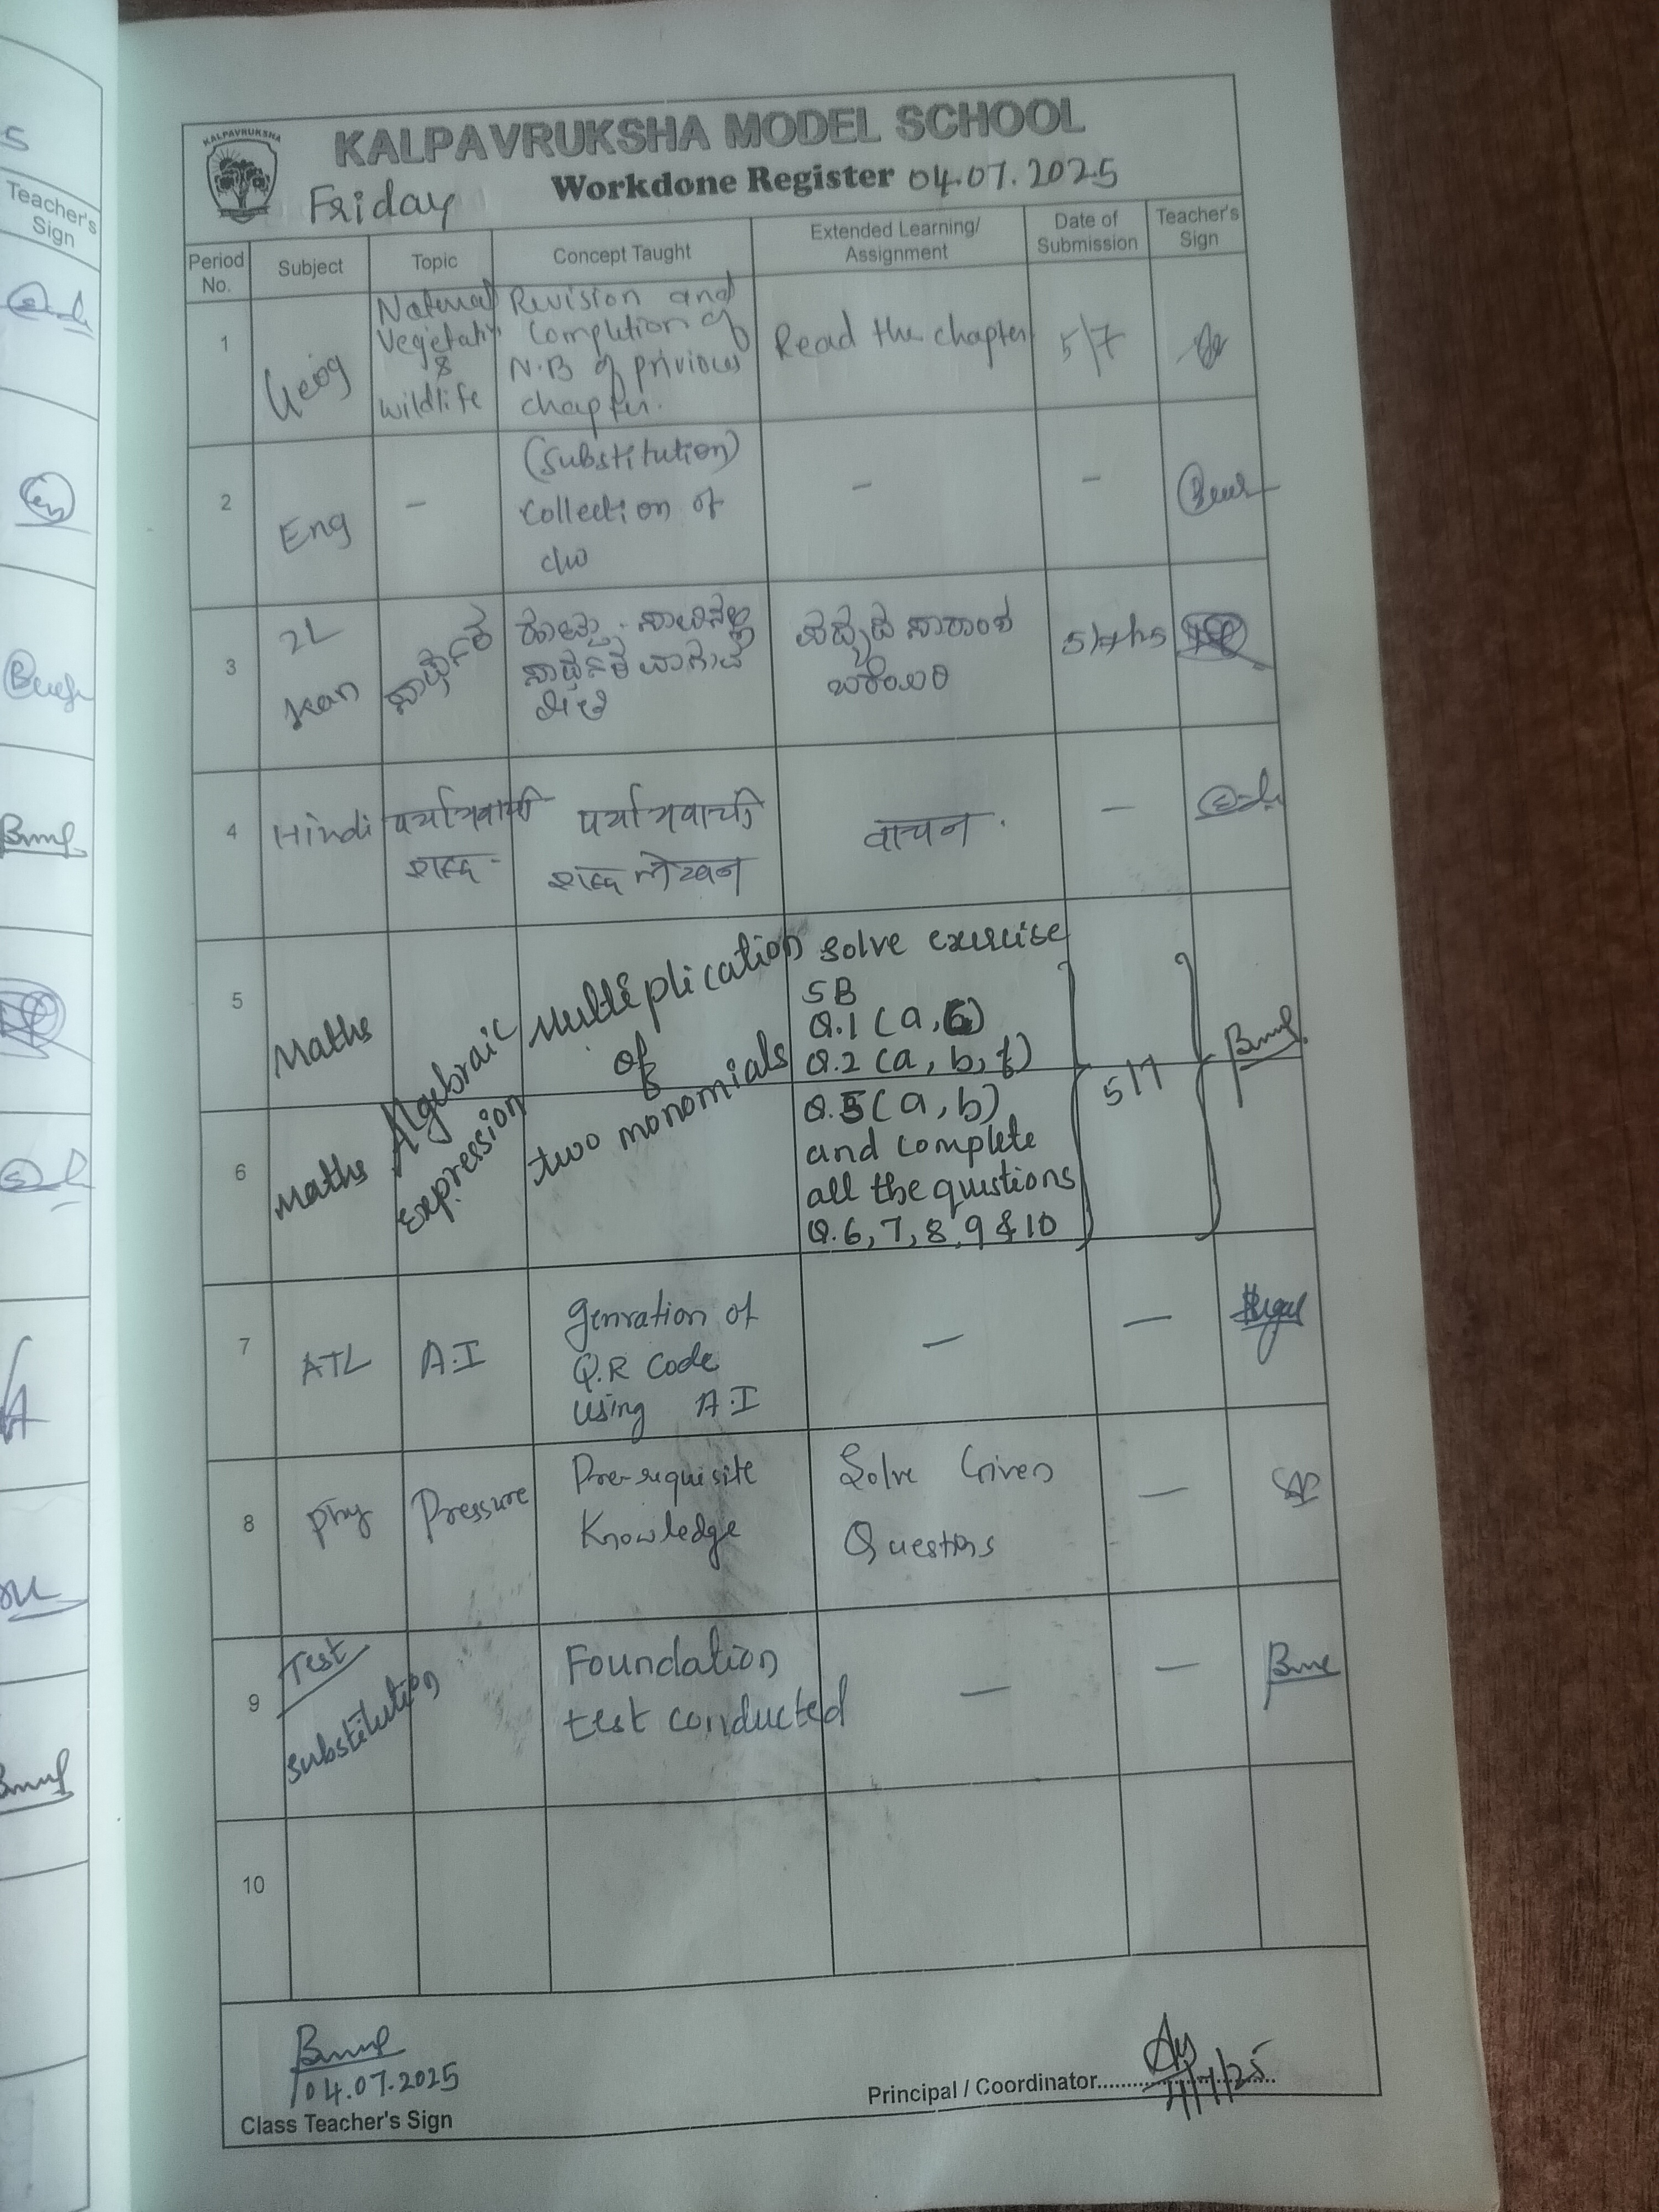 KALPAVRUKSHA
KALPAVRUKSHA MODEL SCHOOL
Friday
Workdone Register 04.07.2025
Period No.
Subject
Topic
Concept Taught
Extended Learning/
Assignment
Date of
Submission
Teacher's
Sign
1
Geog
Natural
Vegetati
&
wildlife
Revision and
Completion of
N.B of privious
chapter.
Read the chapter
5/7
2
Eng
-
(Substitution)
Collection of
cw
-
-
3
2L
Kan
ಸಾರಾಂಶ
ಬರೆಯಿರಿ
4
Hindi
पर्यायवाची
शब्द -
पर्यायवाची
शब्द लेखन
वाचन.
-
5
Maths
6
Maths
Algebraic
Expression
Multiplication
of
two monomials
Solve exercise
5B
Q.1 (a,
Q.2 (a, b, f)
Q.5 (a, b)
and complete
all the qustions
Q.6, 7, 8, 9 & 10
5/7
7
ATL
A.I
genration of
Q.R Code
using A.I
-
-
8
Phy
Pressure
Pre-requisite
Knowledge
Solve Given
Questions
-
9
Test
substitution
Foundation
test conducted
-
-
10
04.07.2025
Class Teacher's Sign
Principal / Coordinator
5
Teacher's
Sign